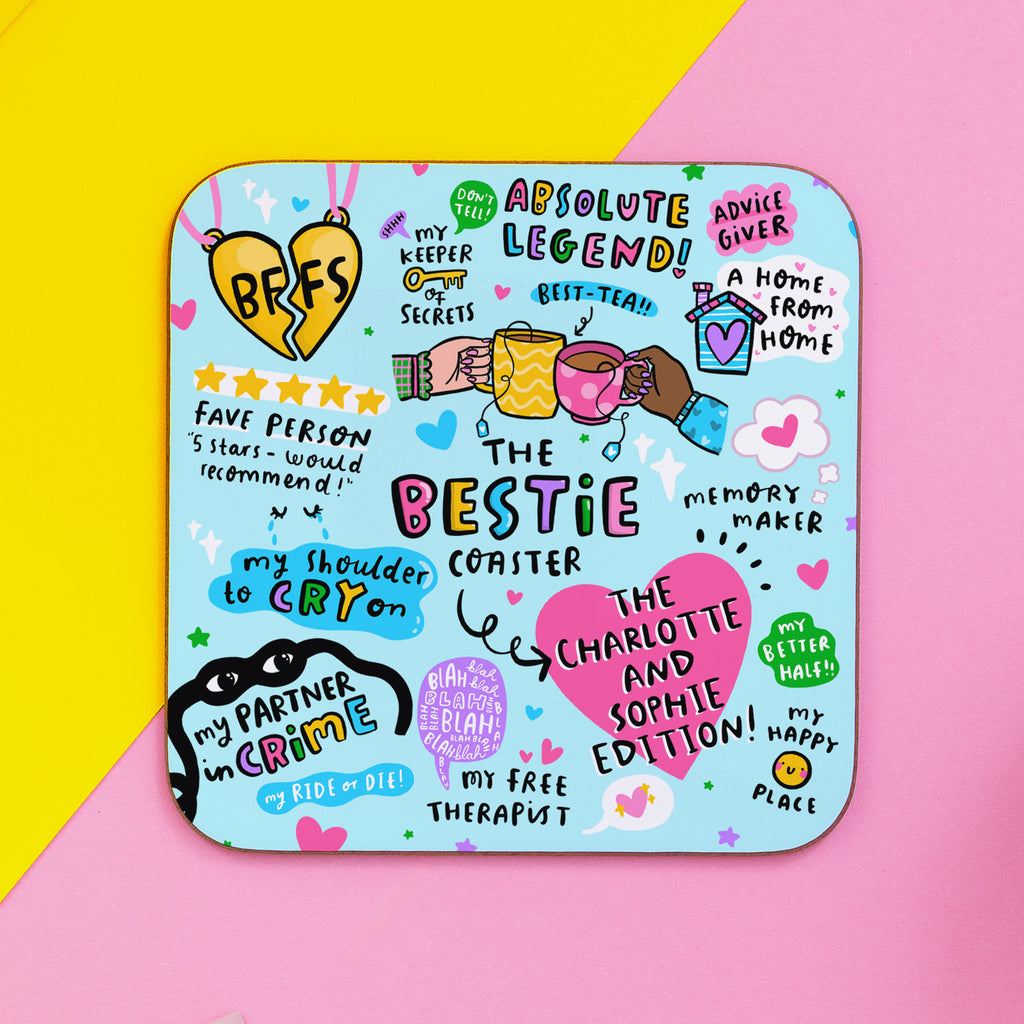 BFFS
SHHH
DON'T
TELL!
MY
KEEPER
OF
SECRETS
ABSOLUTE
LEGEND!
ADVICE
GIVER
BEST-TEA!!
A HOME
FROM
HOME
FAVE PERSON
"5 stars - would
recommend!"
THE
BESTiE
COASTER
MEMORY
MAKER
my shoulder
to CRY on
THE
CHARLOTTE
AND
SOPHIE
EDITION!
MY
BETTER
HALF!!
my PARTNER
in CRiME
my RIDE or DIE!
BLAH blah
BLAH blah
BLAH
BLAH
BLAH BLAH
BLAH blah
MY FREE
THERAPIST
MY
HAPPY
PLACE